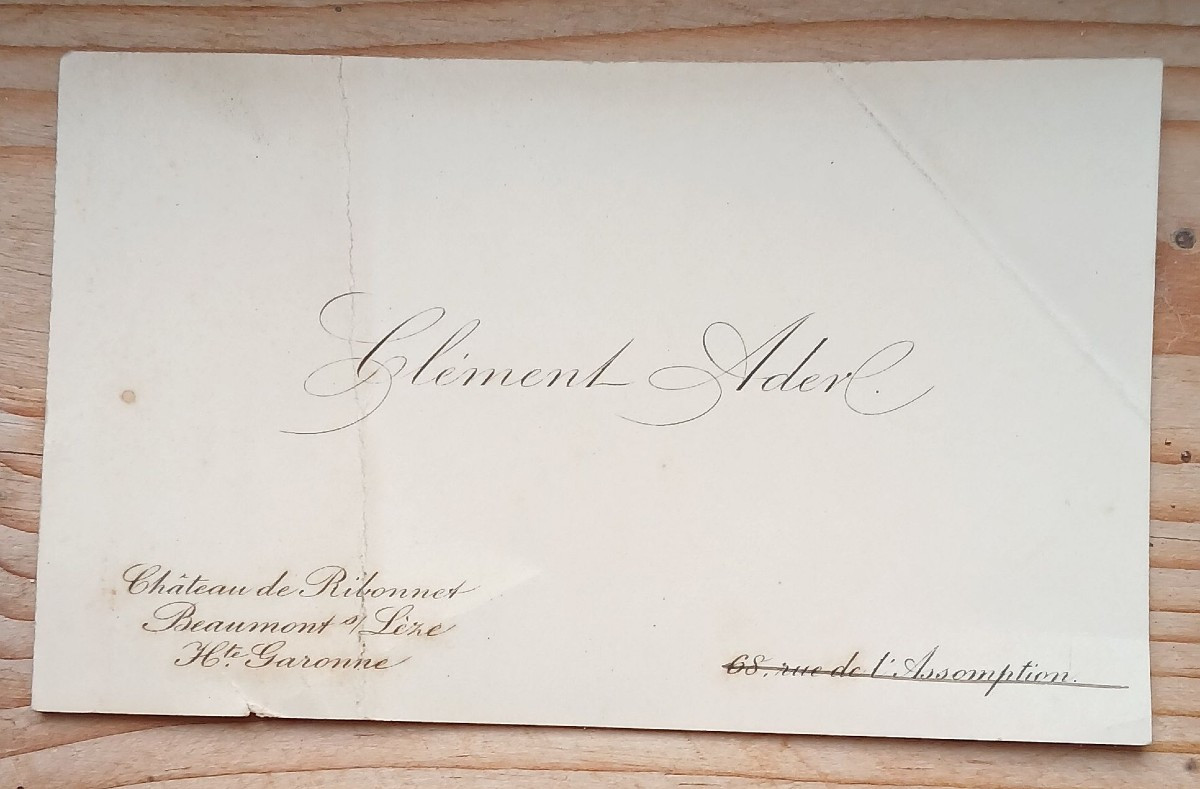 Clément Ader.
Château de Ribonnet
Beaumont s/ Lèze
Hte. Garonne
68, rue de l'Assomption.